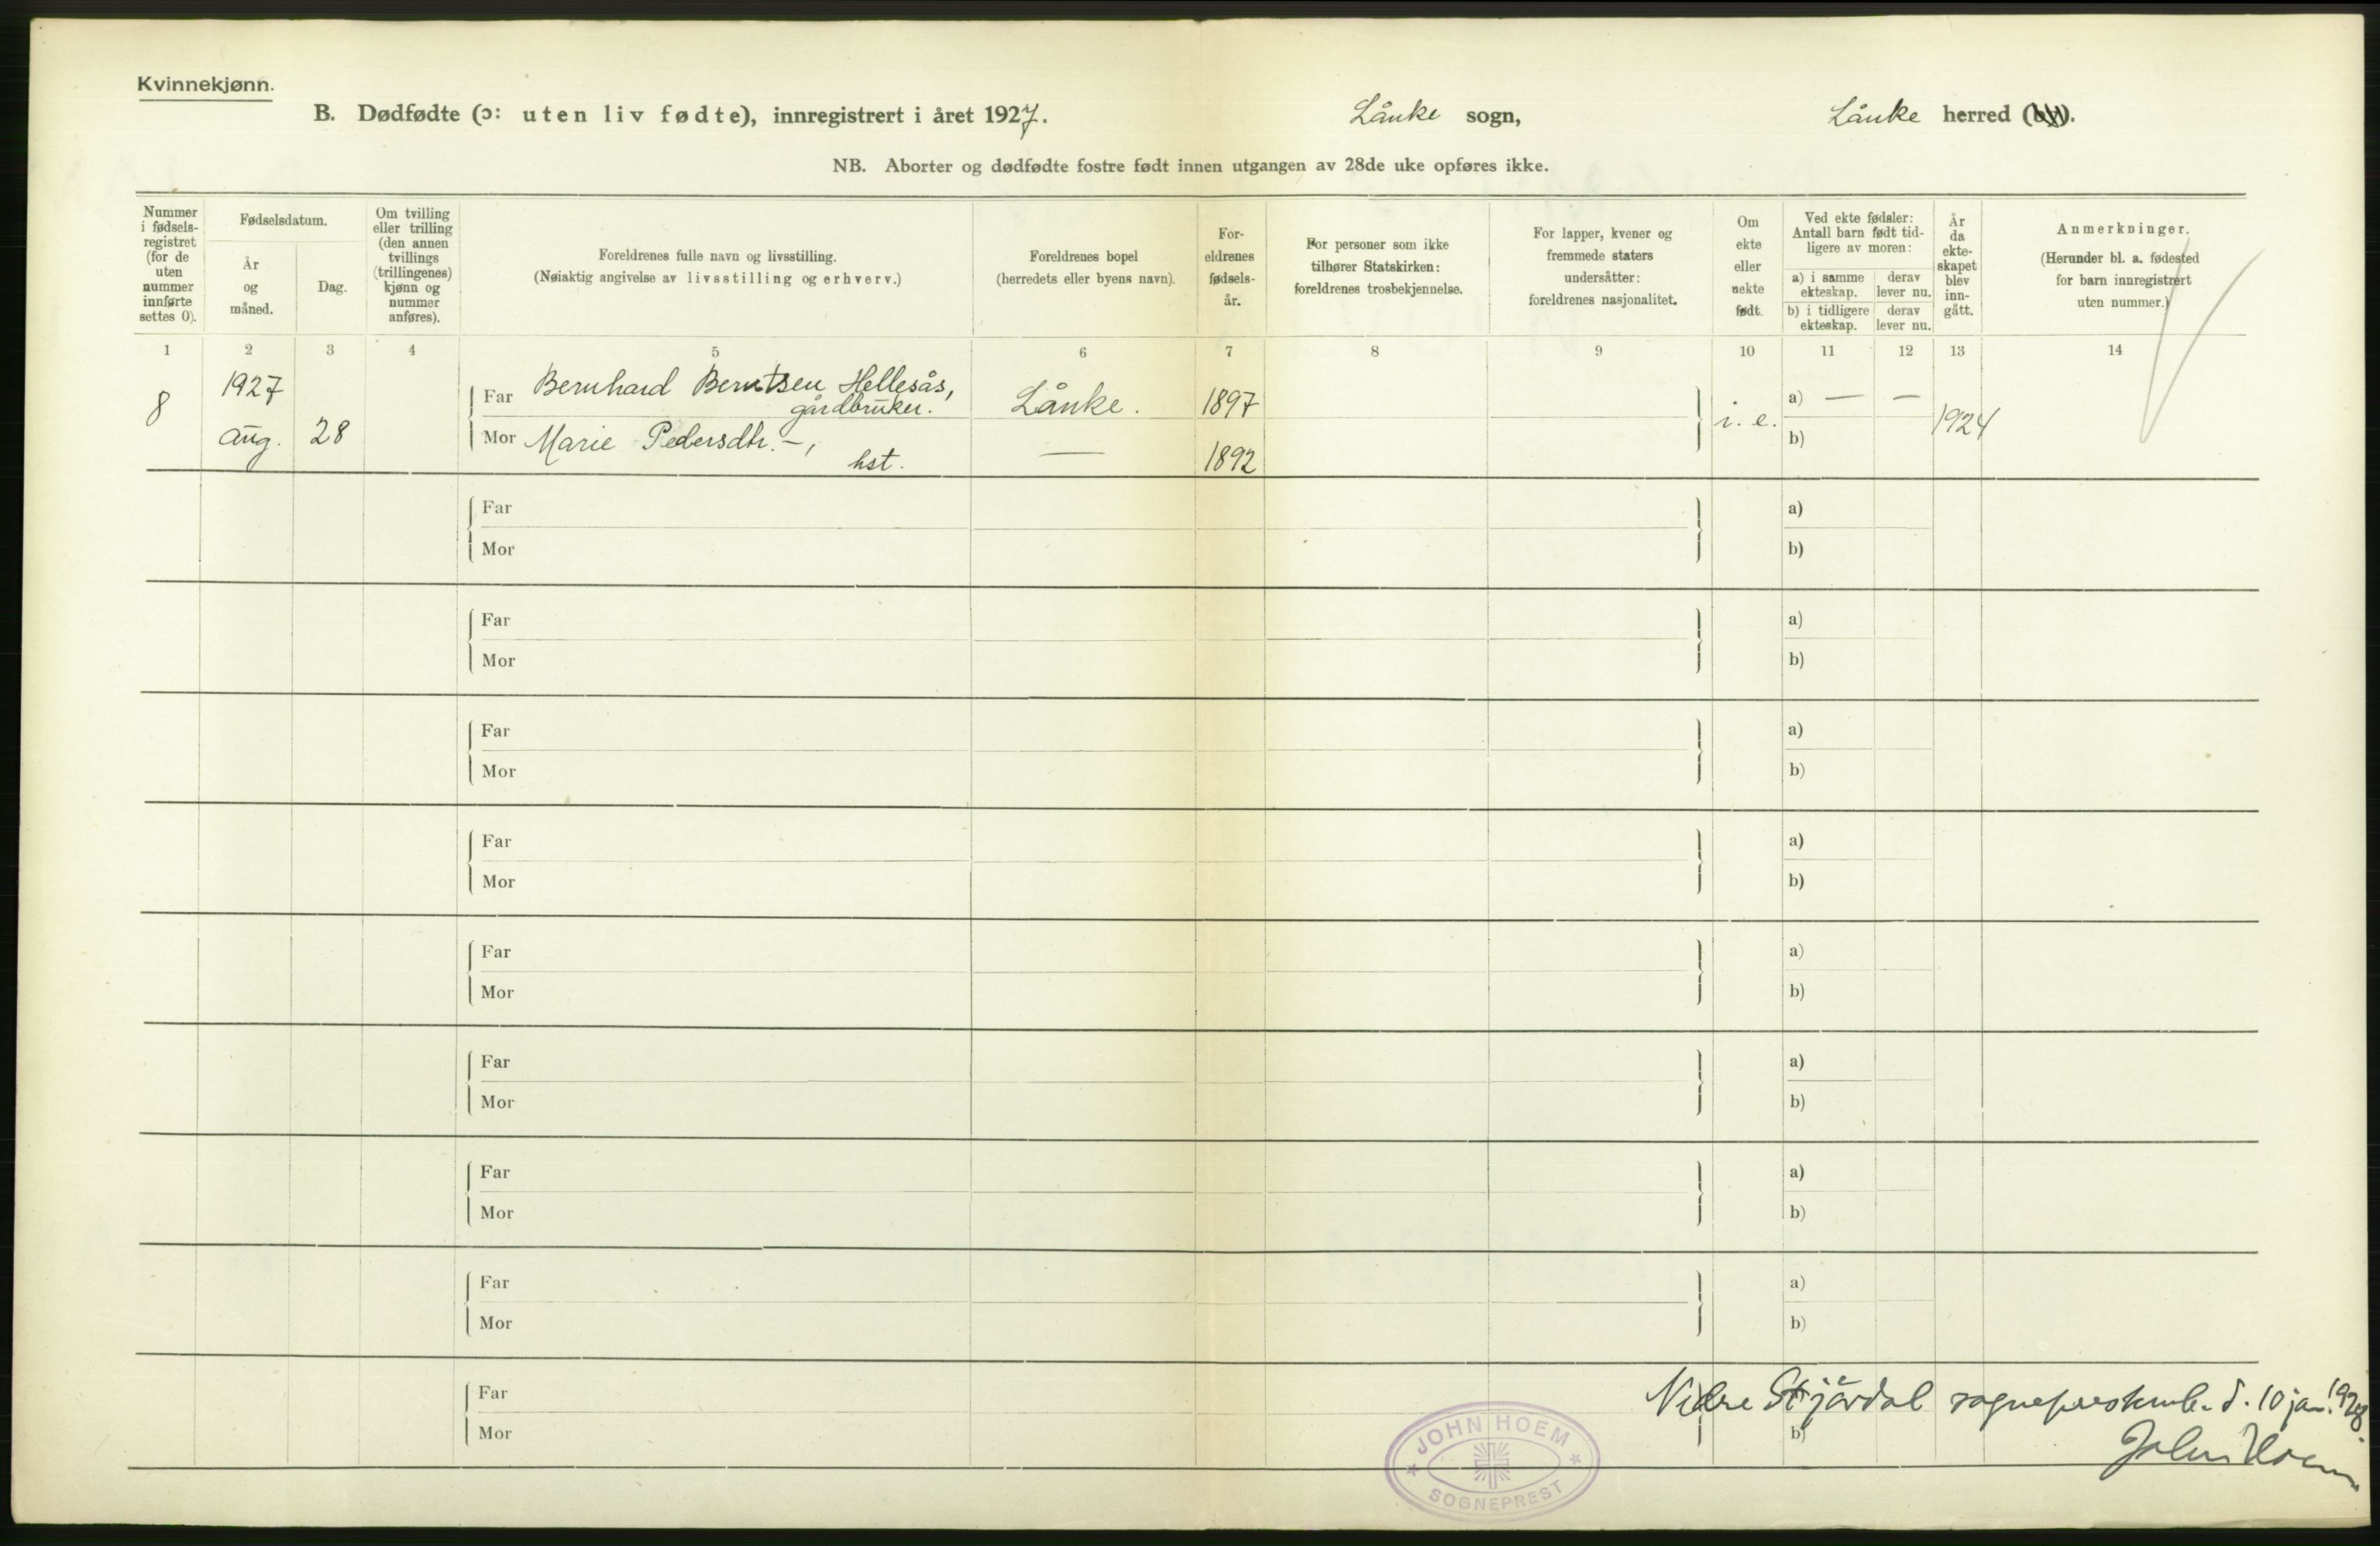 Kvinnekjønn.
B. Dødfødte (ɔ: uten liv fødte), innregistrert i året 1927. Lånke sogn, Lånke herred (by).
NB. Aborter og dødfødte fostre født innen utgangen av 28de uke opføres ikke.
Nummer
i fødsels-
registret
(for de
uten
nummer
innførte
settes 0).
Fødselsdatum.
År
og
måned.
Dag.
Om tvilling
eller trilling
(den annen
tvillings
(trillingenes)
kjønn og
nummer
anføres).
Foreldrenes fulle navn og livsstilling.
(Nøiaktig angivelse av livsstilling og erhverv.)
Foreldrenes bopel
(herredets eller byens navn).
For-
eldrenes
fødsels-
år.
For personer som ikke
tilhører Statskirken:
foreldrenes trosbekjennelse.
For lapper, kvener og
fremmede staters
undersåtter:
foreldrenes nasjonalitet.
Om
ekte
eller
uekte
født.
Ved ekte fødsler:
Antall barn født tid-
ligere av moren:
a) i samme
ekteskap.
derav
lever nu.
b) i tidligere
ekteskap.
derav
lever nu.
År
da
ekte-
skapet
blev
inn-
gått.
Anmerkninger.
(Herunder bl. a. fødested
for barn innregistrert
uten nummer.)
1 2 3 4 5 6 7 8 9 10 11 12 13 14
8
1927
Aug. 28
Far Bernhard Berntsen Hellesås,
gårdbruker.
Lånke. 1897
Mor Marie Pedersdtr. –,
hst.
— 1892
i. e.
a) — —
b)
1924
Far a)
Mor b)
Far a)
Mor b)
Far a)
Mor b)
Far a)
Mor b)
Far a)
Mor b)
Far a)
Mor b)
Far a)
Mor b)
Far a)
Mor b)
Far
Mor b)
Nedre Stjørdal sogneprestemb. d. 10 jan. 1928.
John Hoem
JOHN HOEM
SOGNEPREST